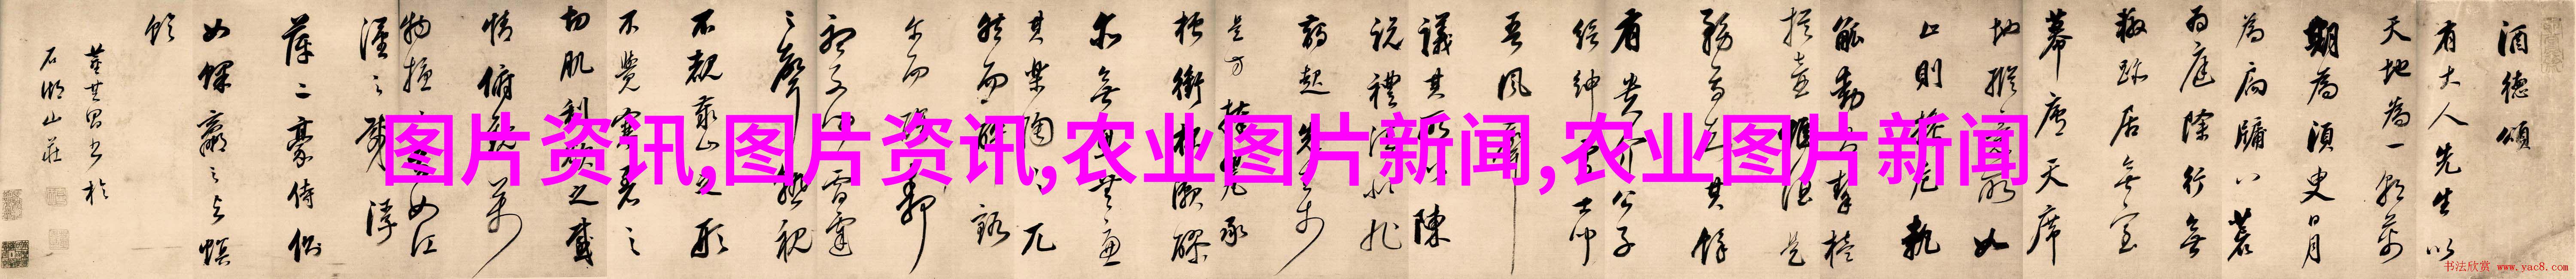 酒德頌
有大人先生以
天地為一朝萬
期為須臾日月
為扃牖八荒
為庭除行無
轍跡居無室
幕廬天席
地縱意所如
止則操卮執
觚動則挈榼
提壺惟酒是
務焉知其餘
有貴介公子
縉紳處士聞
吾風聲
議其所以陳
說禮法是非
起先生於
是方捧罌承
槽銜杯漱醪
無思無慮
其樂陶陶兀
然而醉豁
爾而醒靜
聽不聞雷霆
之聲熟視
不覩泰山之形
不覺寒暑之
切肌利欲之感
情俯觀萬
物擾擾焉如江
漢之載浮
萍二豪侍側
如蜾蠃之與螟
蛉
董其昌書於
石湖山莊
图片资讯,图片资讯,农业图片新闻,农业图片新闻
书法欣赏 www.yac8.com